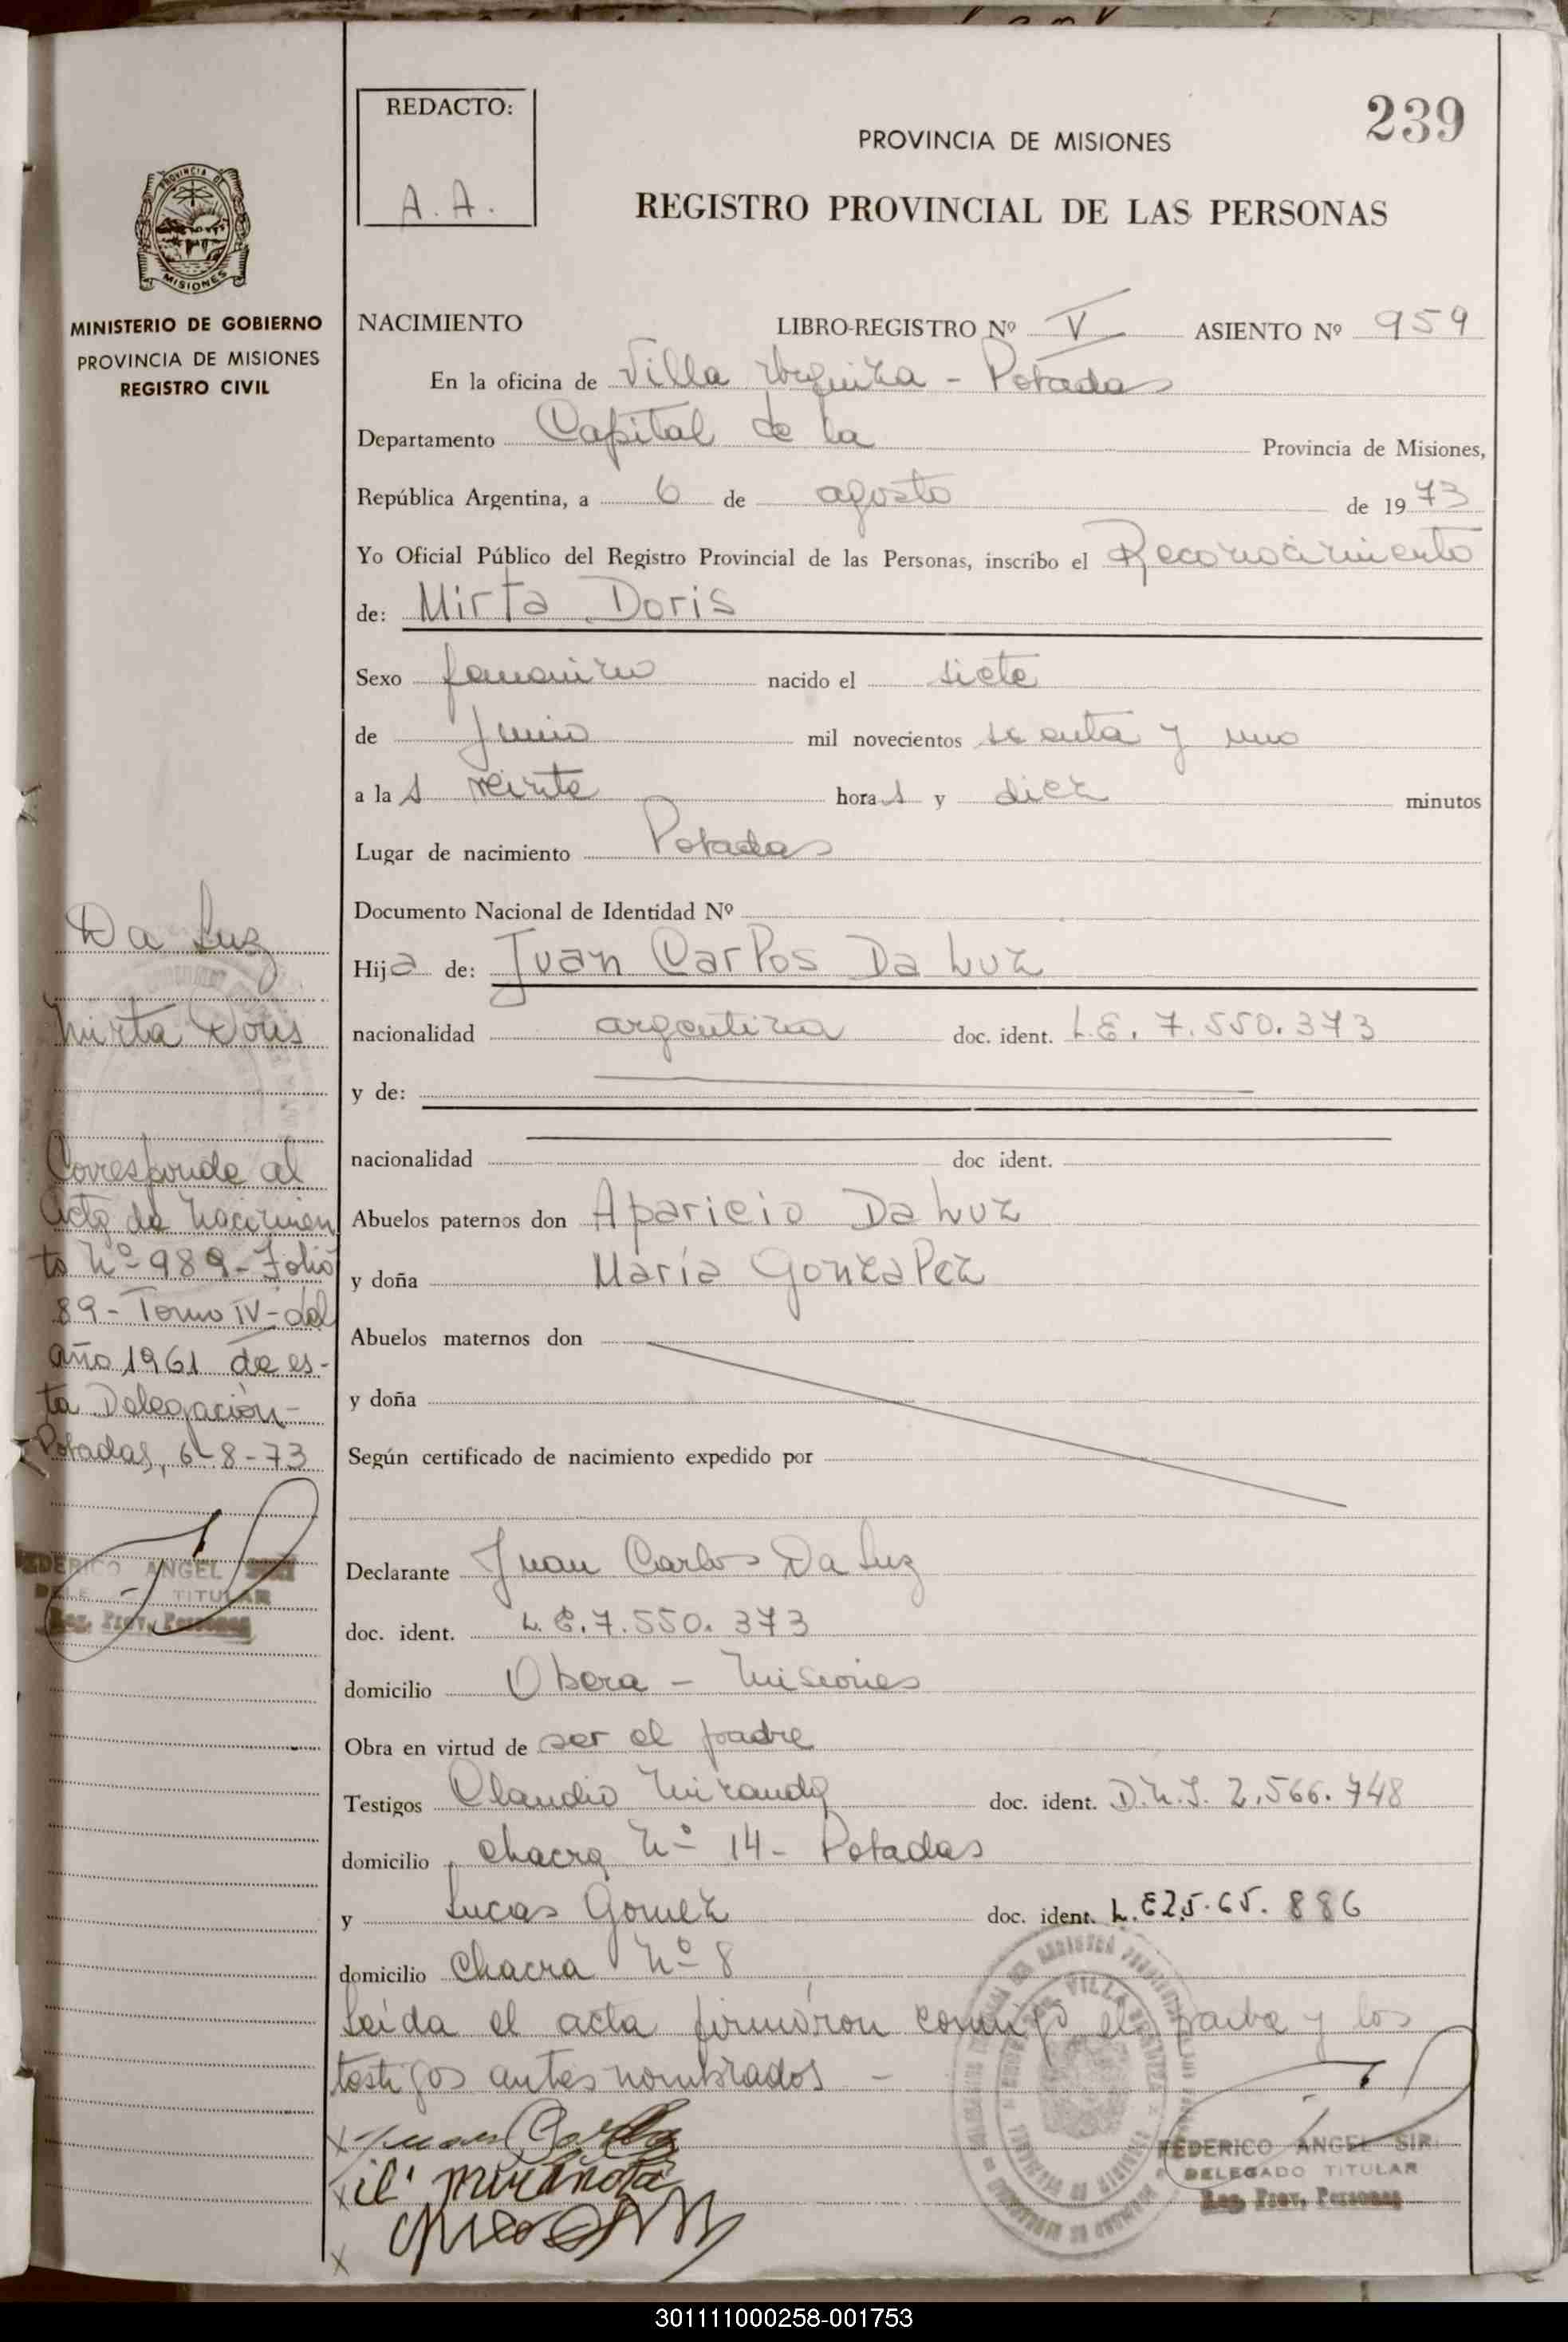 239
REDACTO:
A. A.
PROVINCIA DE MISIONES
REGISTRO PROVINCIAL DE LAS PERSONAS
PROVINCIA DE
MISIONES
MINISTERIO DE GOBIERNO
PROVINCIA DE MISIONES
REGISTRO CIVIL
NACIMIENTO LIBRO-REGISTRO Nº V ASIENTO Nº 959
En la oficina de Villa Urquiza - Posadas
Departamento Capital de la Provincia de Misiones,
República Argentina, a 6 de agosto de 1973
Yo Oficial Público del Registro Provincial de las Personas, inscribo el Reconocimiento
de: Mirta Doris
Sexo femenino nacido el siete
de Junio mil novecientos sesenta y uno
a las veinte horas y diez minutos
Lugar de nacimiento Posadas
Documento Nacional de Identidad Nº
Hija de: Juan Carlos Da Luz
nacionalidad argentina doc. ident. L.E. 7.550.373
y de:
nacionalidad doc ident.
Abuelos paternos don Aparicio Da Luz
y doña María Gonzalez
Abuelos maternos don
y doña
Según certificado de nacimiento expedido por
Declarante Juan Carlos Da Luz
doc. ident. L.E. 7.550.373
domicilio Obera - Misiones
Obra en virtud de ser el padre
Testigos Claudio Miranda doc. ident. D.N.I. 2.566.748
domicilio chacra Nº 14 - Posadas
y Lucas Gomez doc. ident. L.E 25.65.886
domicilio Chacra Nº 8
Leída el acta firmaron conmigo el padre y los
testigos antes nombrados -
Da Luz
Mirta Doris
Corresponde al
Acta de Nacimien
to Nº 989 - Folio
89 - Tomo IV - del
año 1961 de es-
ta Delegación -
Posadas, 6-8-73
FEDERICO ANGEL
DELE TITULAR
Reg. Prov. Personas
x Juan Carlos
x cl. miranda
x
FEDERICO ANGEL SIR
DELEGADO TITULAR
Reg. Prov. Personas
301111000258-001753